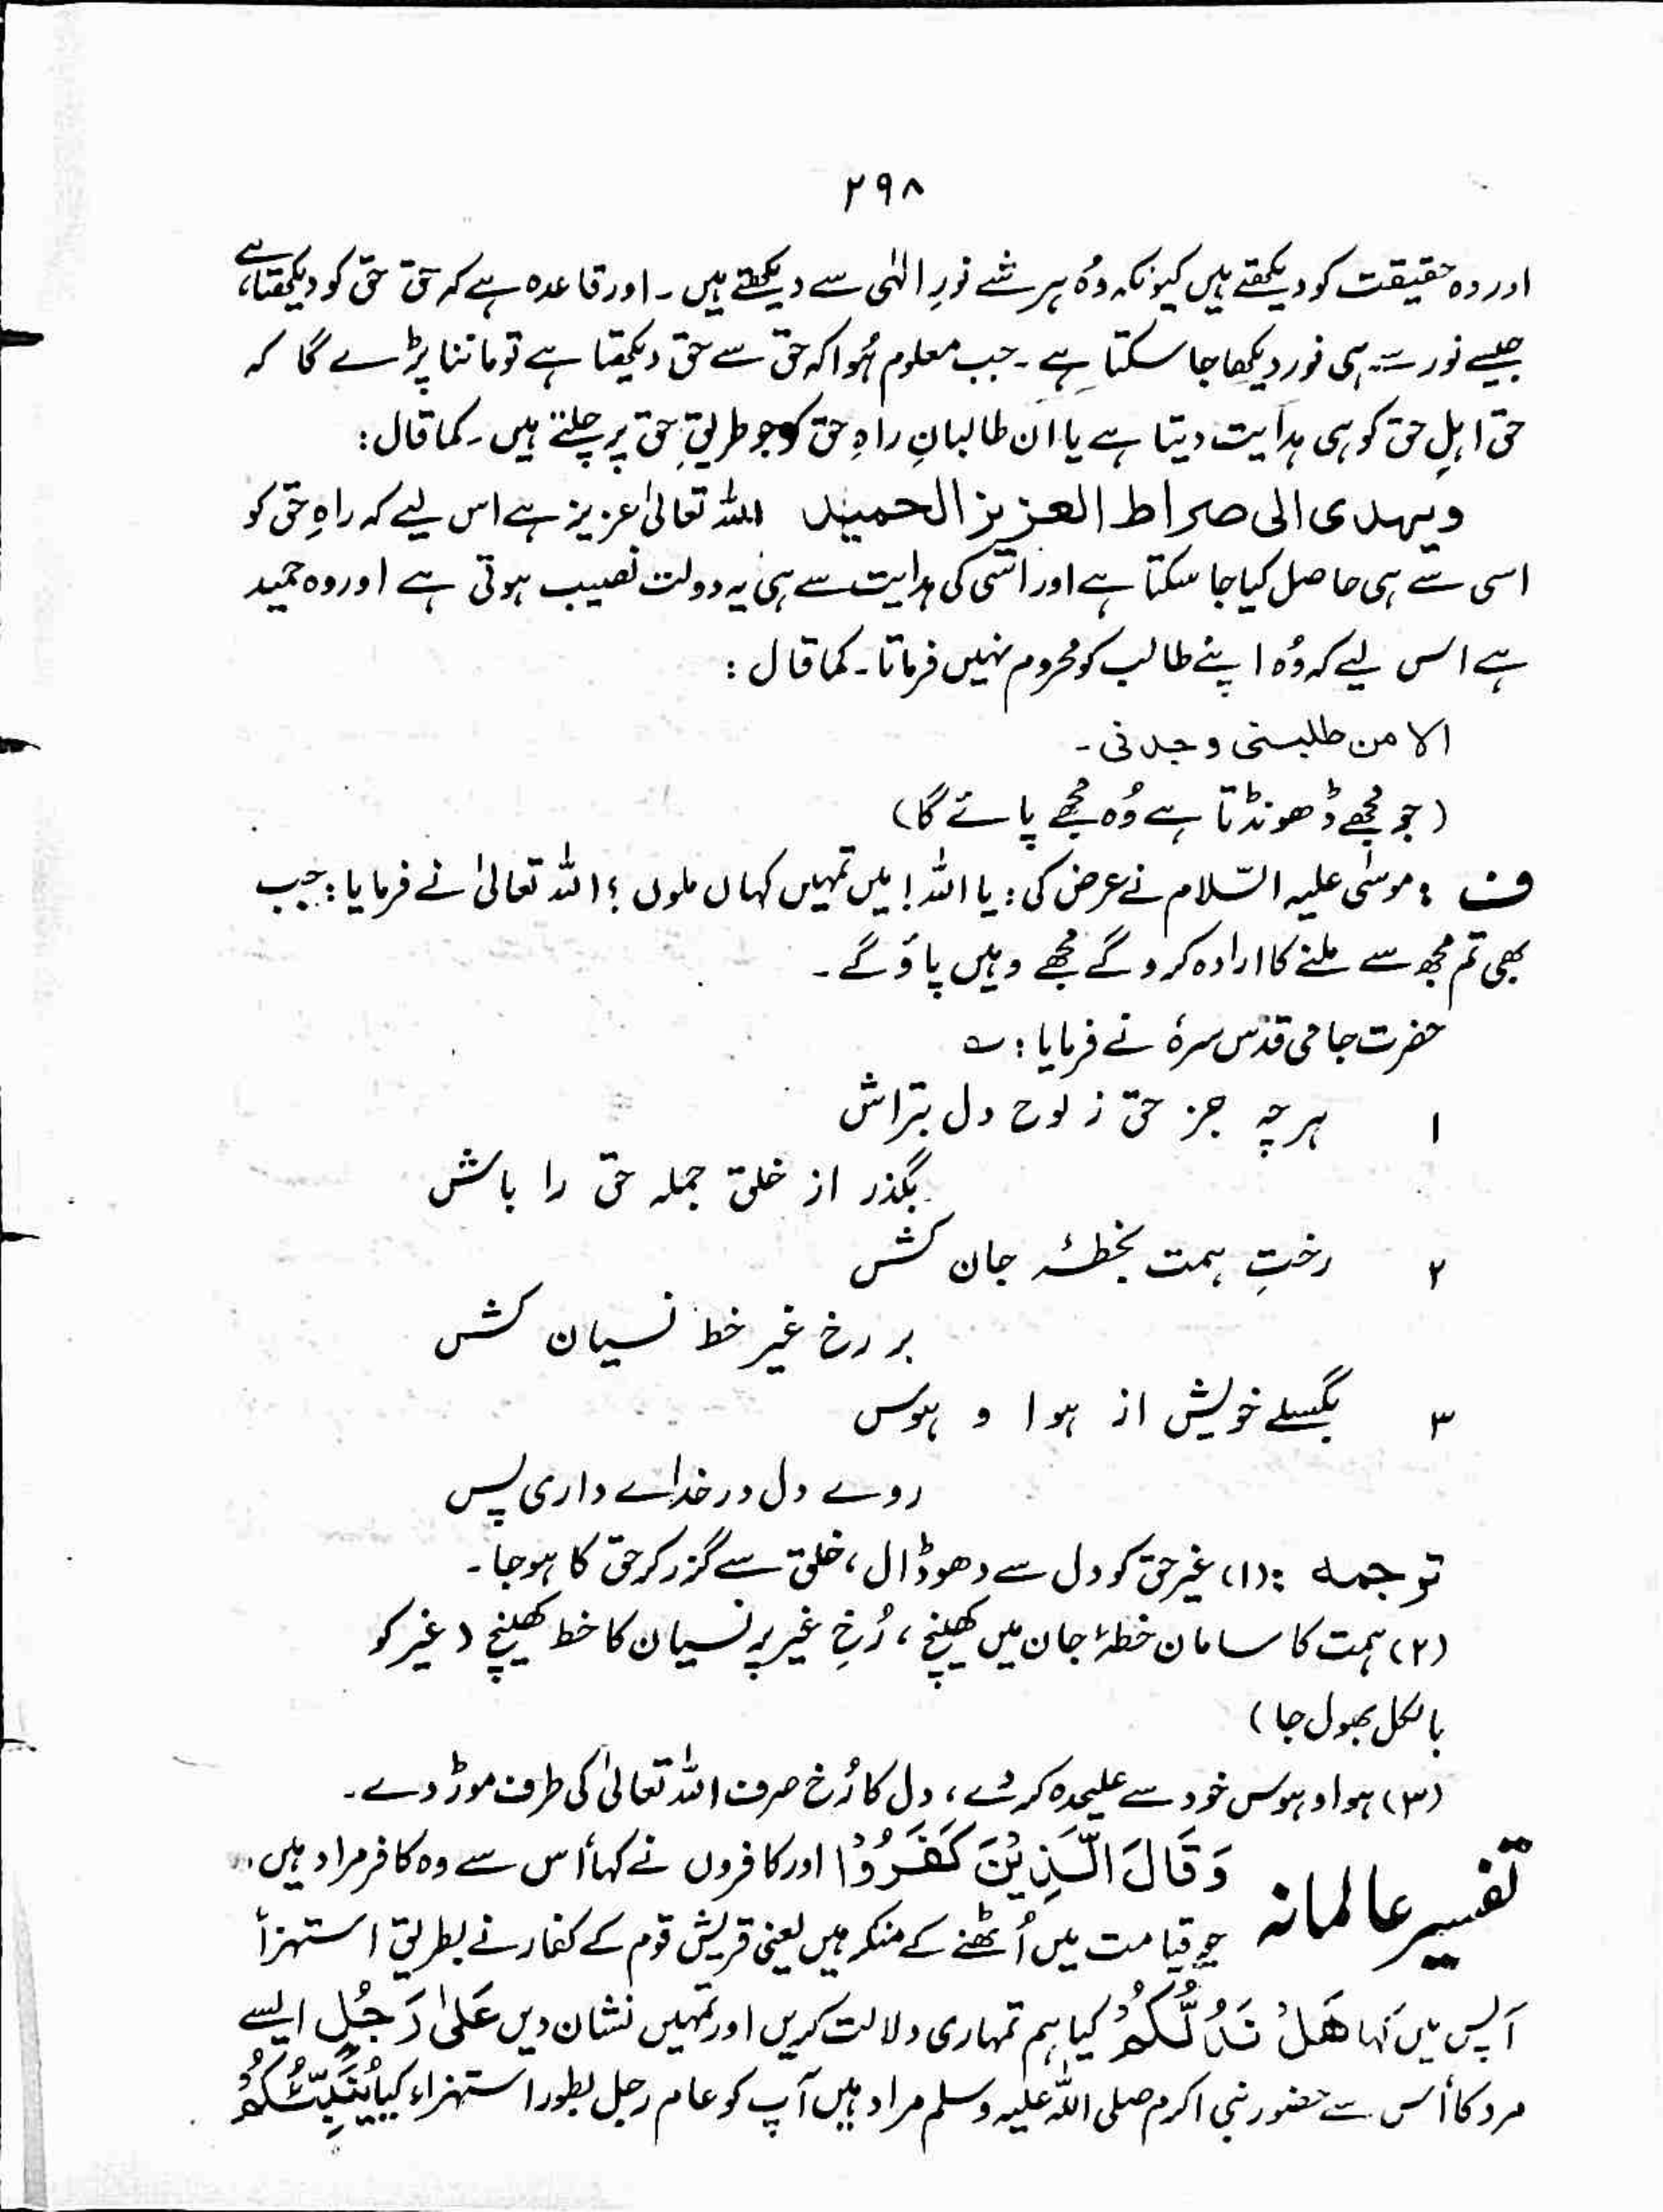 ۲۹۸
اور وہ حقیقت کو دیکھتے ہیں کیونکہ وُہ ہر شے نورِ الٰہی سے دیکھتے ہیں ۔ اور قاعدہ ہے کہ حق حق کو دیکھتا ہے،
جیسے نور سے ہی نور دیکھا جا سکتا ہے ۔ جب معلوم ہُوا کہ حق سے حق دیکھتا ہے تو ماننا پڑے گا کہ
حق اہلِ حق کو ہی ہدایت دیتا ہے یا ان طالبانِ راہِ حق کو جو طریقِ حق پر چلتے ہیں ۔ کما قال :
ویہدی الی صراط العزیز الحمید اللہ تعالیٰ عزیز ہے اس لیے کہ راہِ حق کو
اسی سے ہی حاصل کیا جا سکتا ہے اور اسی کی ہدایت سے ہی یہ دولت نصیب ہوتی ہے اور وہ حمید
ہے اس لیے کہ وُہ اپنے طالب کو محروم نہیں فرماتا ۔ کما قال :
الا من طلبنی وجدنی ۔
( جو مجھے ڈھونڈتا ہے وُہ مجھے پائے گا )
ف : موسٰی علیہ السّلام نے عرض کی : یا اللہ ! میں تمہیں کہاں ملوں ؟ اللہ تعالیٰ نے فرمایا : جب
بھی تم مجھ سے ملنے کا ارادہ کرو گے مجھے وہیں پاؤ گے ۔
حضرت جامی قدس سرہٗ نے فرمایا : ؎
۱ ہر چہ جز حق ز لوح دل بتراش
بگذر از خلق جملہ حق را باش
۲ رختِ ہمت بخطۂ جان کش
بر رخ غیر خط نسیان کش
۳ بگسلے خویش از ہوا و ہوس
روے دل در خداے داری پس
ترجمہ : (۱) غیر حق کو دل سے دھو ڈال ، خلق سے گزر کر حق کا ہو جا ۔
(۲) ہمت کا سامان خطۂ جان میں کھینچ ، رُخِ غیر پہ نسیان کا خط کھینچ ( غیر کو
بالکل بھول جا )
(۳) ہوا و ہوس خود سے علیحدہ کر دے ، دل کا رُخ صرف اللہ تعالیٰ کی طرف موڑ دے ۔
تفسیر عالمانہ وَقَالَ الَّذِیْنَ کَفَرُوْا اور کافروں نے کہا اُس سے وہ کافر مراد ہیں
جو قیامت میں اُٹھنے کے منکر ہیں یعنی قریش قوم کے کفار نے بطریق استہزأ
آپس میں کہا هَلْ نَدُلُّكُمْ کیا ہم تمہاری دلالت کریں اور تمہیں نشان دیں عَلٰی رَجُلٍ ایسے
مرد کا اُس سے حضور نبی اکرم صلی اللہ علیہ وسلم مراد ہیں آپ کو عام رجل بطور استہزاء کیا یُنَبِّئُکُمْ